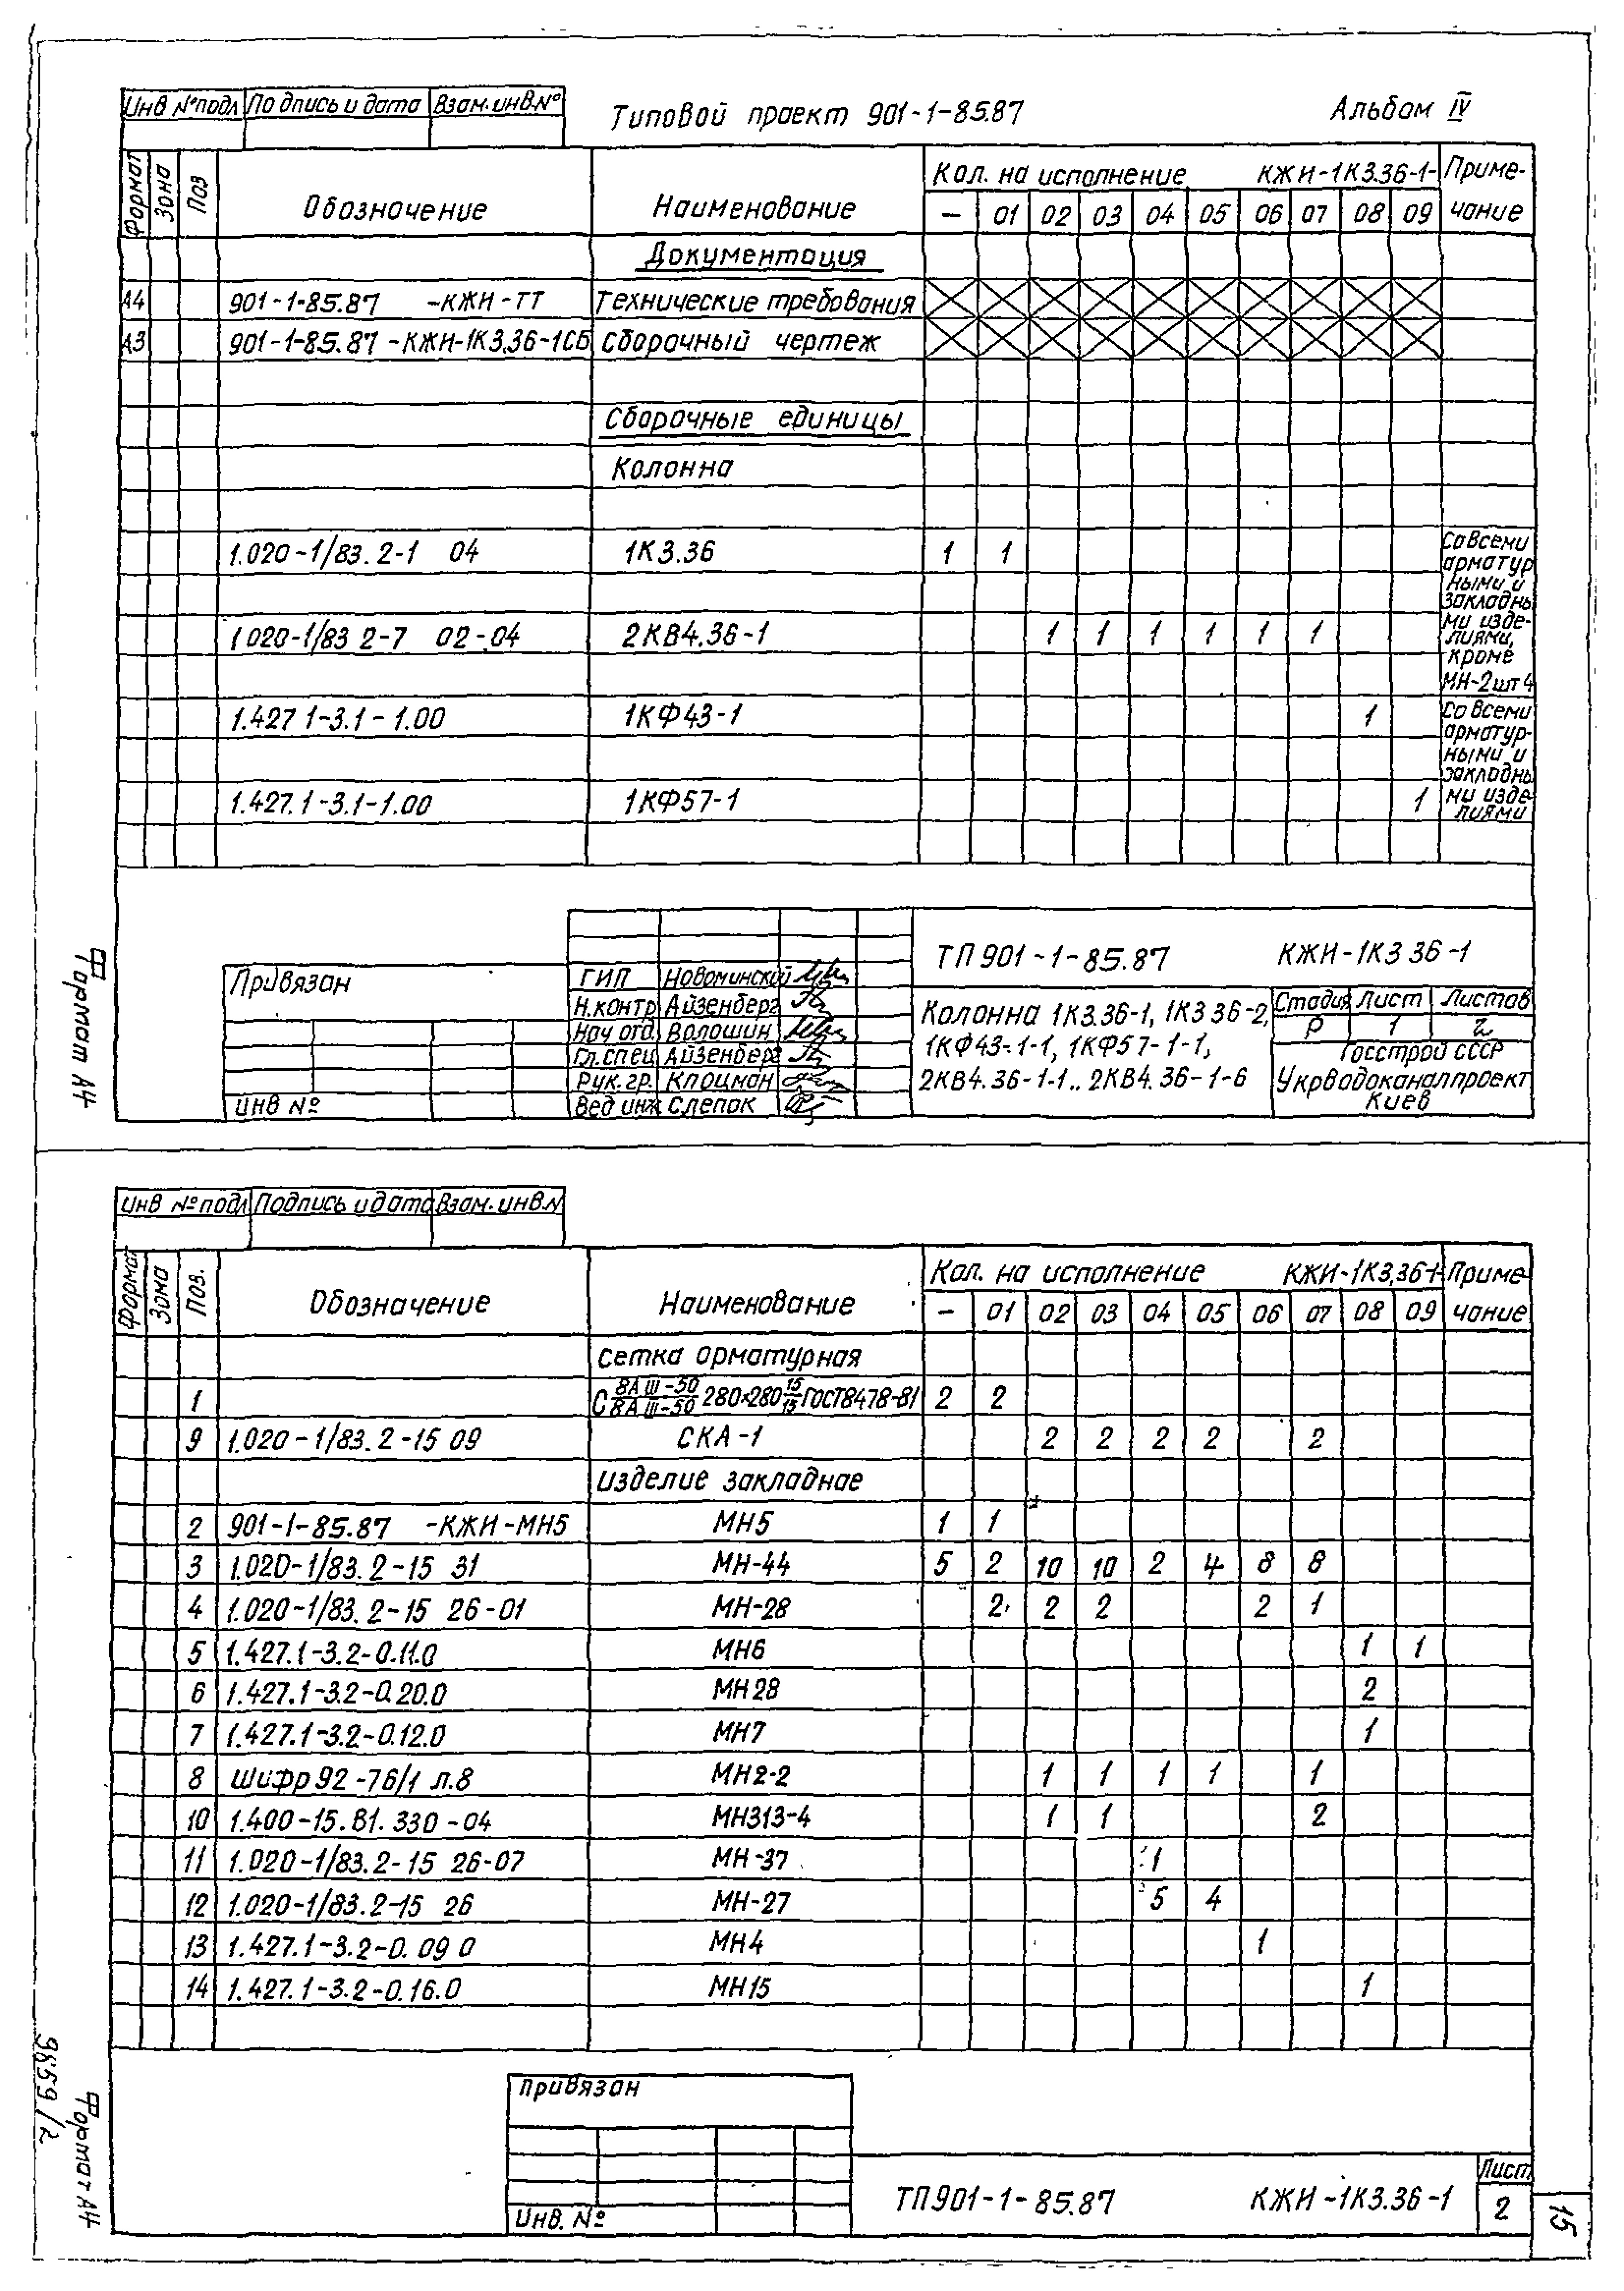 Инв №подл Подпись и дата Взам.инв.№
Типовой проект 901-1-85.87 Альбом IV
Формат Зона Поз Обозначение Наименование Кол. на исполнение КЖИ-1К3.36-1- Приме-
чание
— 01 02 03 04 05 06 07 08 09
Документация
А4 901-1-85.87 -КЖИ-ТТ Технические требования
А3 901-1-85.87-КЖИ-1К3.36-1СБ Сборочный чертеж
Сборочные единицы
Колонна
1.020-1/83. 2-1 04 1К3.36 1 1
1.020-1/83 2-7 02-04 2КВ4.36-1 1 1 1 1 1 1
Со всеми
арматур
ными и
закладны
ми изде-
лиями,
кроме
МН-2шт4
1.427 1-3.1-1.00 1КФ43-1 1
1.427.1-3.1-1.00 1КФ57-1 1
Со всеми
арматур-
ными и
закладны
ми изде-
лиями
Формат А4
Привязан
ИНВ №
ГИП Новоминский
Н.контр Айзенберг
Нач отд. Волошин
Гл.спец Айзенберг
Рук.гр. Клоцман
Вед инж Слепок
ТП 901-1-85.87 КЖИ-1К3 36-1
Колонна 1К3.36-1, 1К3 36-2,
1КФ43-1-1, 1КФ57-1-1,
2КВ4.36-1-1.. 2КВ4.36-1-6
Стадия Лист Листов
Р 1 2
Госстрой СССР
Укрводоканалпроект
Киев
Инв № подл Подпись и дата Взам.инв.N
Форма Зона Поз. Обозначение Наименование Кол. на исполнение КЖИ-1К3.36-1- Приме-
чание
— 01 02 03 04 05 06 07 08 09
Сетка арматурная
1 С 8А III-50/8А III-50 280×280 15/15 ГОСТ8478-81 2 2
9 1.020-1/83. 2-15 09 СКА-1 2 2 2 2 2
Изделие закладное
2 901-1-85.87 -КЖИ-МН5 МН5 1 1
3 1.020-1/83. 2-15 31 МН-44 5 2 10 10 2 4 8 8
4 1.020-1/83. 2-15 26-01 МН-28 2 2 2 2 1
5 1.427.1-3.2-0.11.0 МН6 1 1
6 1.427.1-3.2-0.20.0 МН28 2
7 1.427.1-3.2-0.12.0 МН7 1
8 Шифр 92-76/1 л.8 МН2-2 1 1 1 1 1
10 1.400-15.В1. 330-04 МН313-4 1 1 2
11 1.020-1/83.2-15 26-07 МН-37 1
12 1.020-1/83.2-15 26 МН-27 5 4
13 1.427.1-3.2-0. 09 0 МН4 1
14 1.427.1-3.2-0.16.0 МН15 1
Формат А4
9659/2
Привязан
Инв. №
ТП901-1-85.87 КЖИ-1К3.36-1
Лист
2
15